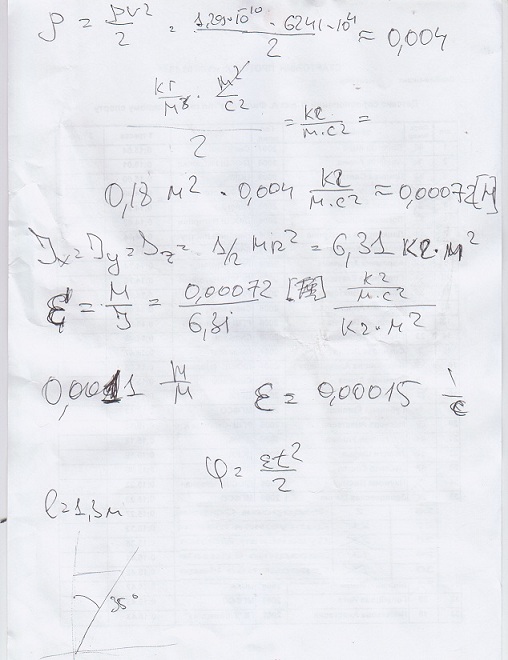 ρ = ρv²/2 = 1,29·10⁻¹⁰ · 6241·10⁴ / 2 ≈ 0,004
кг/м³ · м²/с² / 2 = кг/м·с² =
0,18 м² · 0,004 кг/м·с² ≈ 0,00072[Н]
Jx = Jy = Jz = 1/2 мR² = 6,31 кг·м²
ε = М/J = 0,00072 / 6,31 кг/м·с² / кг·м²
0,0011 Н/м ε = 0,00015 1/с
φ = εt²/2
l=1,3м
35°